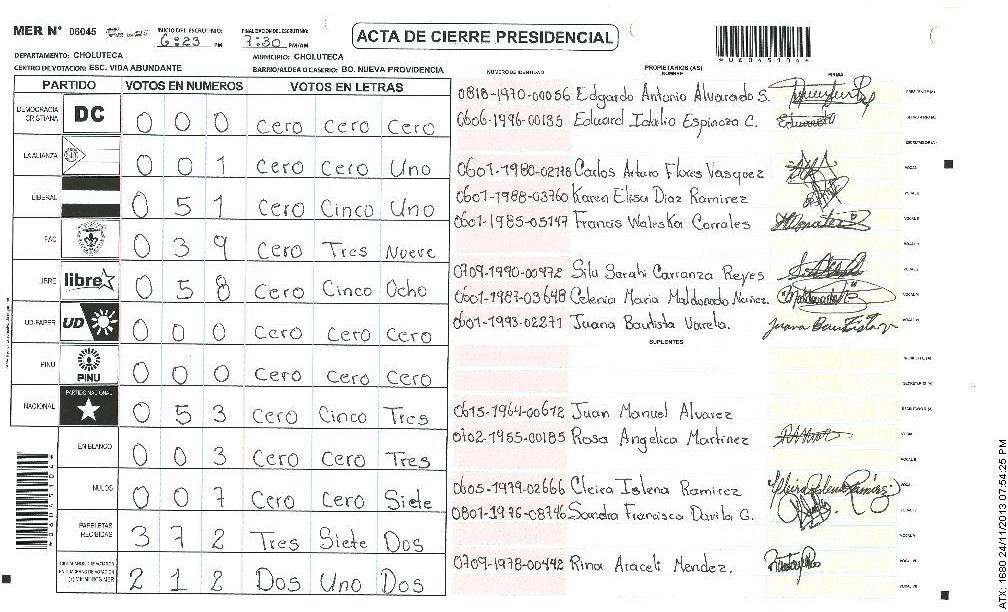 MER N° 06045
INICIO DEL ESCRUTINIO:
6:23 PM
FINALIZACION DEL ESCRUTINIO:
7:30 PM/AM
ACTA DE CIERRE PRESIDENCIAL
*060451041*
DEPARTAMENTO: CHOLUTECA
MUNICIPIO: CHOLUTECA
CENTRO DE VOTACION: ESC. VIDA ABUNDANTE
BARRIO/ALDEA O CASERIO: BO. NUEVA PROVIDENCIA
PARTIDO VOTOS EN NUMEROS VOTOS EN LETRAS
DEMOCRACIA CRISTIANA DC 0 0 0 Cero Cero Cero
LA ALIANZA 0 0 1 Cero Cero Uno
LIBERAL 0 5 1 Cero Cinco Uno
PAC 0 3 9 Cero Tres Nueve
LIBRE libre 0 5 8 Cero Cinco Ocho
UD-FAPER UD 0 0 0 Cero Cero Cero
PINU PINU 0 0 0 Cero Cero Cero
NACIONAL PARTIDO NACIONAL 0 5 3 Cero Cinco Tres
EN BLANCO 0 0 3 Cero Cero Tres
NULOS 0 0 7 Cero Cero Siete
PAPELETAS RECIBIDAS 3 7 2 Tres Siete Dos
2 1 2 Dos Uno Dos
NUMERO DE IDENTIDAD
PROPIETARIOS (AS)
NOMBRE
FIRMA
0818-1970-00056 Edgardo Antonio Alvarado S.
0606-1996-00135 Eduard Idalio Espinoza C.
0601-1980-02778 Carlos Arturo Flores Vasquez
0601-1988-03760 Karen Elisa Diaz Ramirez
0601-1985-05147 Francis Waleska Corrales
0709-1990-00972 Sila Sarahi Carranza Reyes
0601-1987-03648 Celenia Maria Maldonado Nuñez.
0601-1993-02271 Juana Bautista Varela.
Juana Bautista V
SUPLENTES
0615-1964-00672 Juan Manuel Alvarez
0702-1955-00185 Rosa Angelica Martinez
0605-1979-02666 Cleira Islena Ramirez
0801-1976-08746 Sandra Francisca Davila G.
0709-1978-00442 Rina Araceli Mendez.
ATX: 1680 24/11/2013 07:54:25 PM